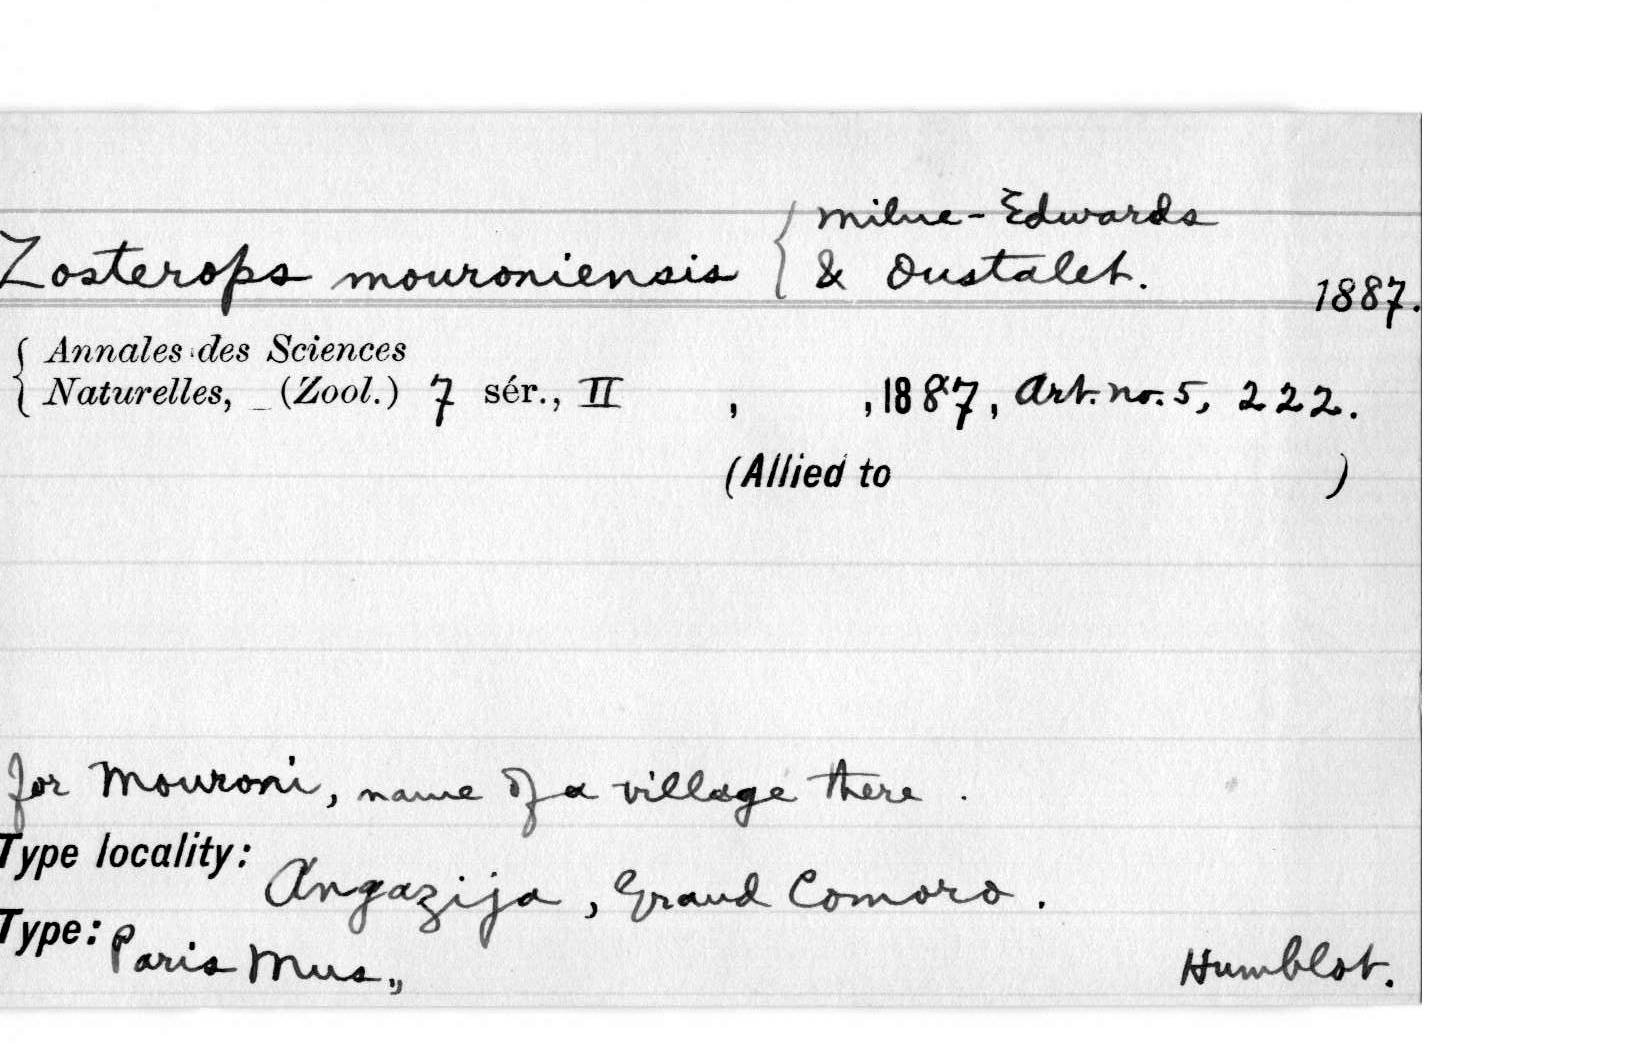 Zosterops mouroniensis { Milne-Edwards
& Oustalet. 1887.
{ Annales des Sciences
Naturelles, _ (Zool.) 7 sér., II , , 1887, Art. no. 5, 222.
(Allied to )
for Mouroni, name of a village there.
Type locality:
Angazija, Grand Comoro.
Type: Paris Mus., Humblot.